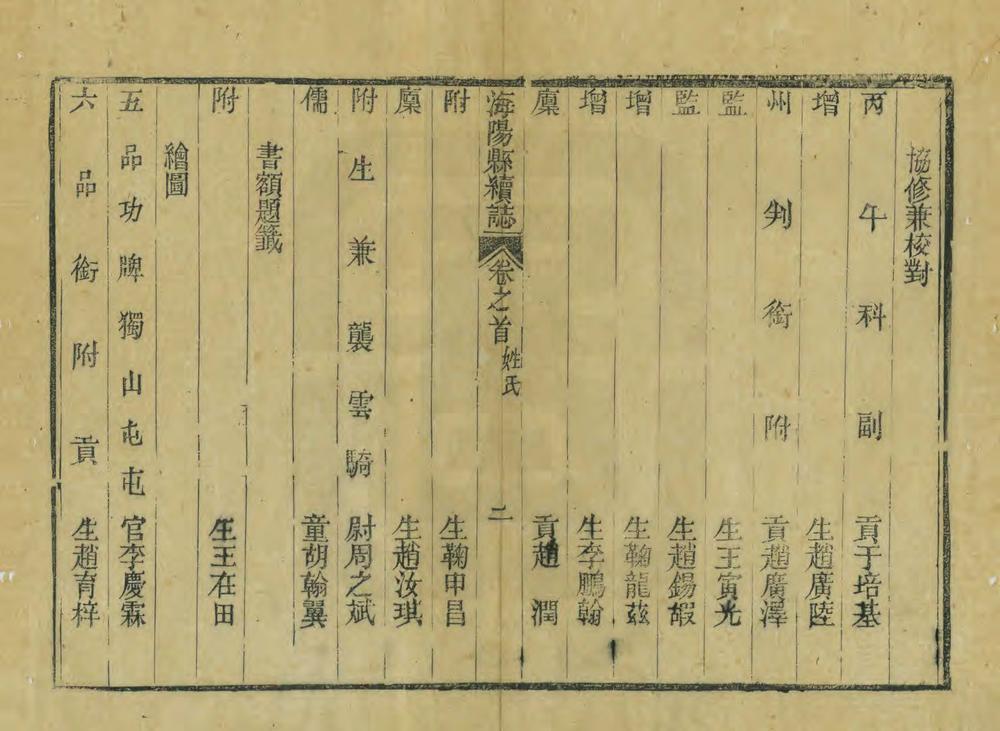 協修兼校對
丙午科副貢于培基
增生趙廣陸
州判銜附貢趙廣澤
監生王寅光
監生趙錫嘏
增生鞠龍茲
增生李鵬翰
廩貢趙潤
海陽縣續誌 卷之首 姓氏 二
附生鞠申昌
廩生趙汝琪
附生兼襲雲騎尉周之斌
儒童胡翰翼
書額題籤
附生王在田
繪圖
五品功牌獨山屯屯官李慶霖
六品銜附貢生趙育梓